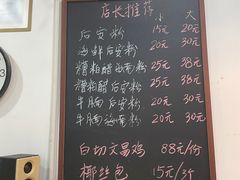 店长推荐
小 大
后安粉 15元 20元
海鲜后安粉 20元 30元
糟粕醋海南粉 25元 38元
糟粕醋后安粉 25元 38元
牛腩后安粉 20元 30元
牛腩海南粉 20元 30元
白切文昌鸡 88元/份
椰丝包 15元/3个